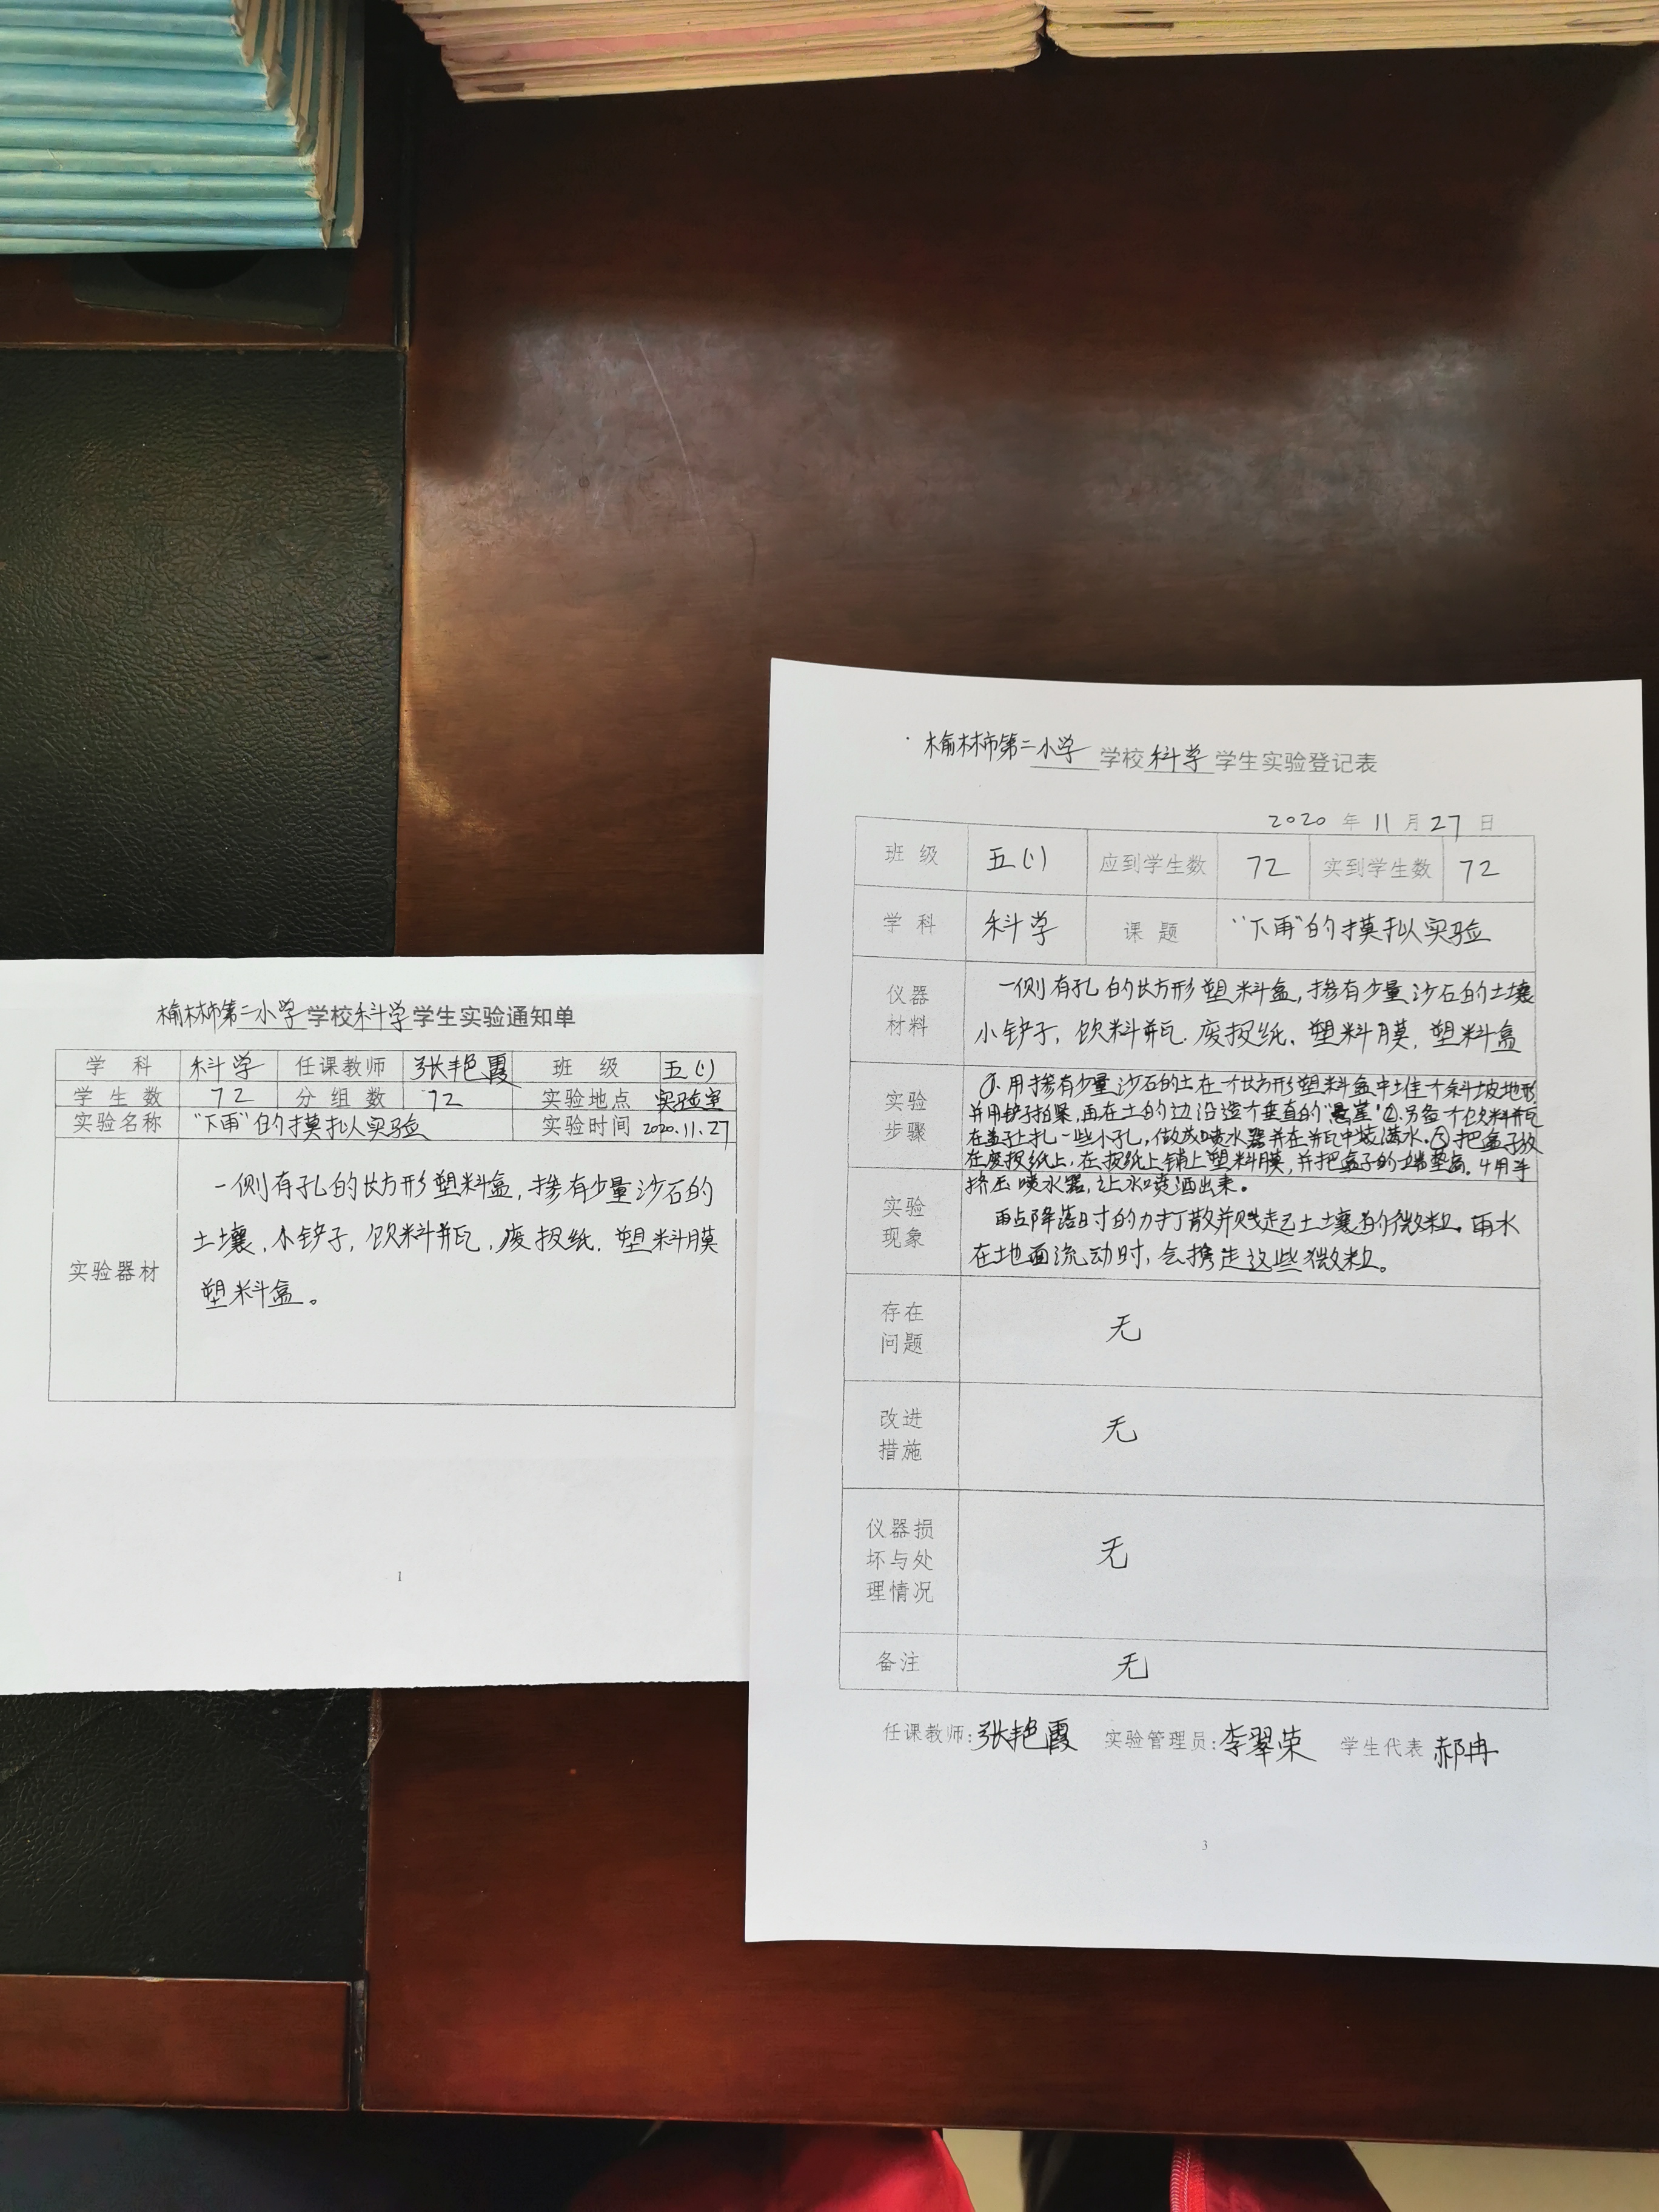 榆林市第二小学学校科学学生实验通知单
学 科 科学 任课教师 张艳霞 班 级 五(1)
学 生 数 72 分 组 数 72 实验地点 实验室
实验名称 "下雨"的摸拟实验 实验时间 2020.11.27
一侧有孔的长方形塑料盒,掺有少量沙石的
土壤,小铲子,饮料瓶,废报纸,塑料膜
实验器材
塑料盒。
1
榆林市第二小学 学校 科学 学生实验登记表
2020 年 11 月 27 日
班 级 五(1) 应到学生数 72 实到学生数 72
学 科 科学 课 题 "下雨"的摸拟实验
仪器
材料
一侧有孔的长方形塑料盒,掺有少量沙石的土壤
小铲子,饮料瓶.废报纸.塑料膜,塑料盒
实验
步骤
①.用掺有少量沙石的土在一个长方形塑料盒中堆个斜坡地形
并用铲子拍緊,再在土的边沿造个垂直的"悬崖"②.另备个饮料瓶
在盖子上扎一些小孔,做成喷水器并在瓶中装满水.③把盒子放
在废报纸上,在报纸上铺上塑料膜,并把盒子的土端垫高。4用手
挤压喷水器,让水喷洒出来。
实验
现象
雨点降落时的力打散并溅起土壤的微粒,雨水
在地面流动时,会携走这些微粒。
存在
问题
无
改进
措施
无
仪器损
坏与处
理情况
无
备注 无
任课教师:张艳霞 实验管理员:李翠荣 学生代表 郝冉
3